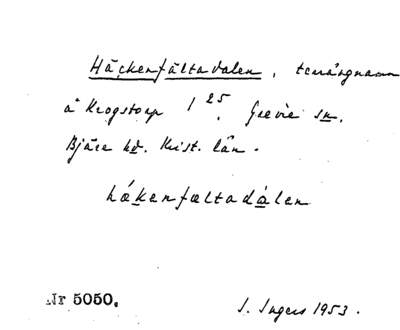 Häckenfältadalen, terrängnamn
å Krogstorp 1 25. Grevie sn.
Bjäre hd. Krist. län.
hákenfæltadálen
Nr 5050.
I. Ingers 1953.